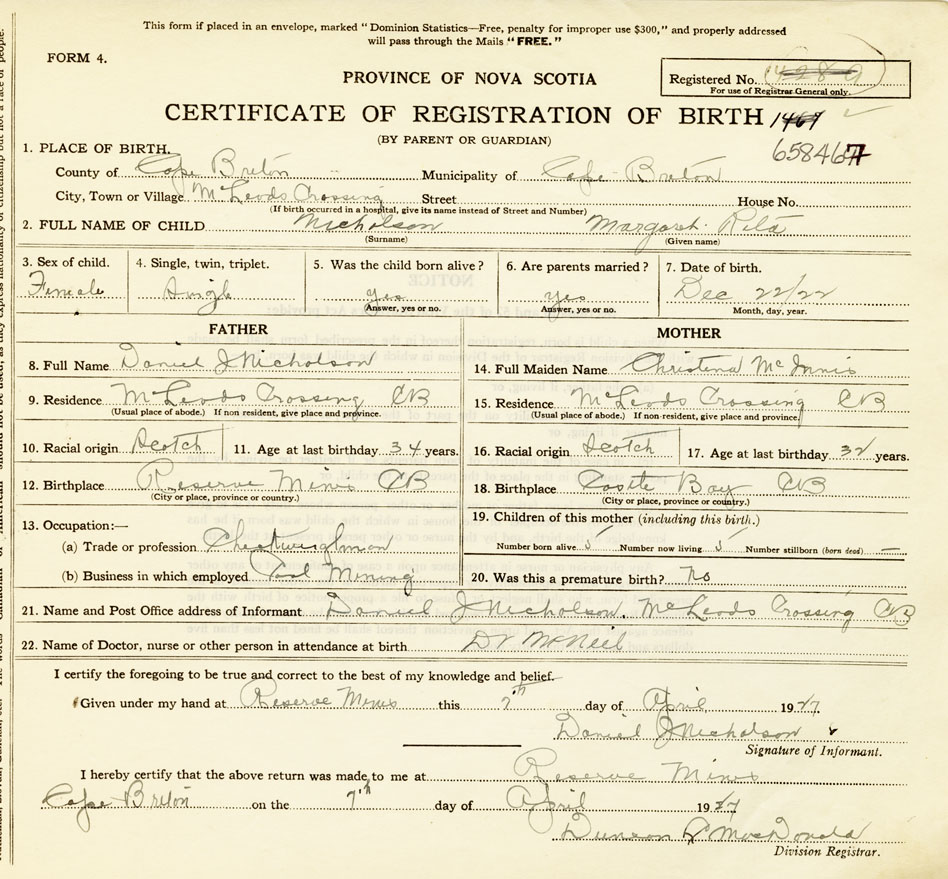 This form if placed in an envelope, marked "Dominion Statistics—Free, penalty for improper use $300," and properly addressed
will pass through the Mails "FREE."
FORM 4.
PROVINCE OF NOVA SCOTIA
Registered No.
For use of Registrar General only.
CERTIFICATE OF REGISTRATION OF BIRTH
(BY PARENT OR GUARDIAN)
658467
1. PLACE OF BIRTH.
County of Cape Breton Municipality of Cape Breton
City, Town or Village McLeods Crossing Street House No.
(If birth occurred in a hospital, give its name instead of Street and Number)
2. FULL NAME OF CHILD Nicholson Margaret Rita
(Surname) (Given name)
3. Sex of child. 4. Single, twin, triplet. 5. Was the child born alive? 6. Are parents married? 7. Date of birth.
Female Single yes yes Dec 22/22
Answer, yes or no. Answer, yes or no. Month, day, year.
FATHER MOTHER
8. Full Name Daniel J Nicholson 14. Full Maiden Name Christina McInnis
9. Residence McLeods Crossing CB 15. Residence McLeods Crossing CB
(Usual place of abode.) If non resident, give place and province. (Usual place of abode.) If non-resident, give place and province.
10. Racial origin Scotch 11. Age at last birthday 34 years. 16. Racial origin Scotch 17. Age at last birthday 32 years.
12. Birthplace Reserve Mines CB 18. Birthplace Bay CB
(City or place, province or country.) (City or place, province or country.)
13. Occupation:— 19. Children of this mother (including this birth.)
(a) Trade or profession Checkweighman Number born alive 5 Number now living 5 Number stillborn (born dead) —
(b) Business in which employed Coal Mining 20. Was this a premature birth? No
21. Name and Post Office address of Informant Daniel J Nicholson. McLeods Crossing CB
22. Name of Doctor, nurse or other person in attendance at birth Dr McNeil
I certify the foregoing to be true and correct to the best of my knowledge and belief.
Given under my hand at Reserve Mines this 7th day of April 1927
Daniel J Nicholson
Signature of Informant.
I hereby certify that the above return was made to me at Reserve Mines
Cape Breton on the 7th day of April 1927
Duncan MacDonald
Division Registrar.